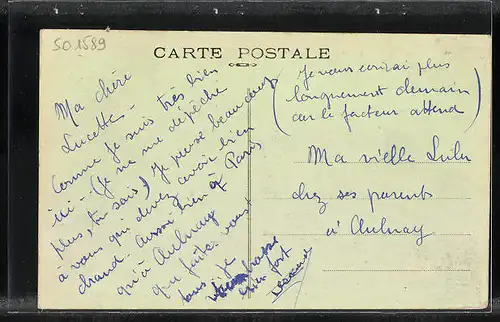 501589
CARTE POSTALE
Ma chère
Lucette -
Comme je suis très bien
ici - (je ne me dépêche
plus, tu sais) Je pense beaucoup
à vous qui devez avoir bien
chaud. Aussi bien à Paris
qu'à Aulnay
que faites vous
tous ? je
embrasse
bien fort
(Je vous écrirai plus
longuement demain
car le facteur attend)
Ma vieille Lulu
chez ses parents
à Aulnay